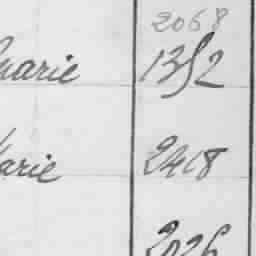 2068
marie 1352
Marie 2418
2026